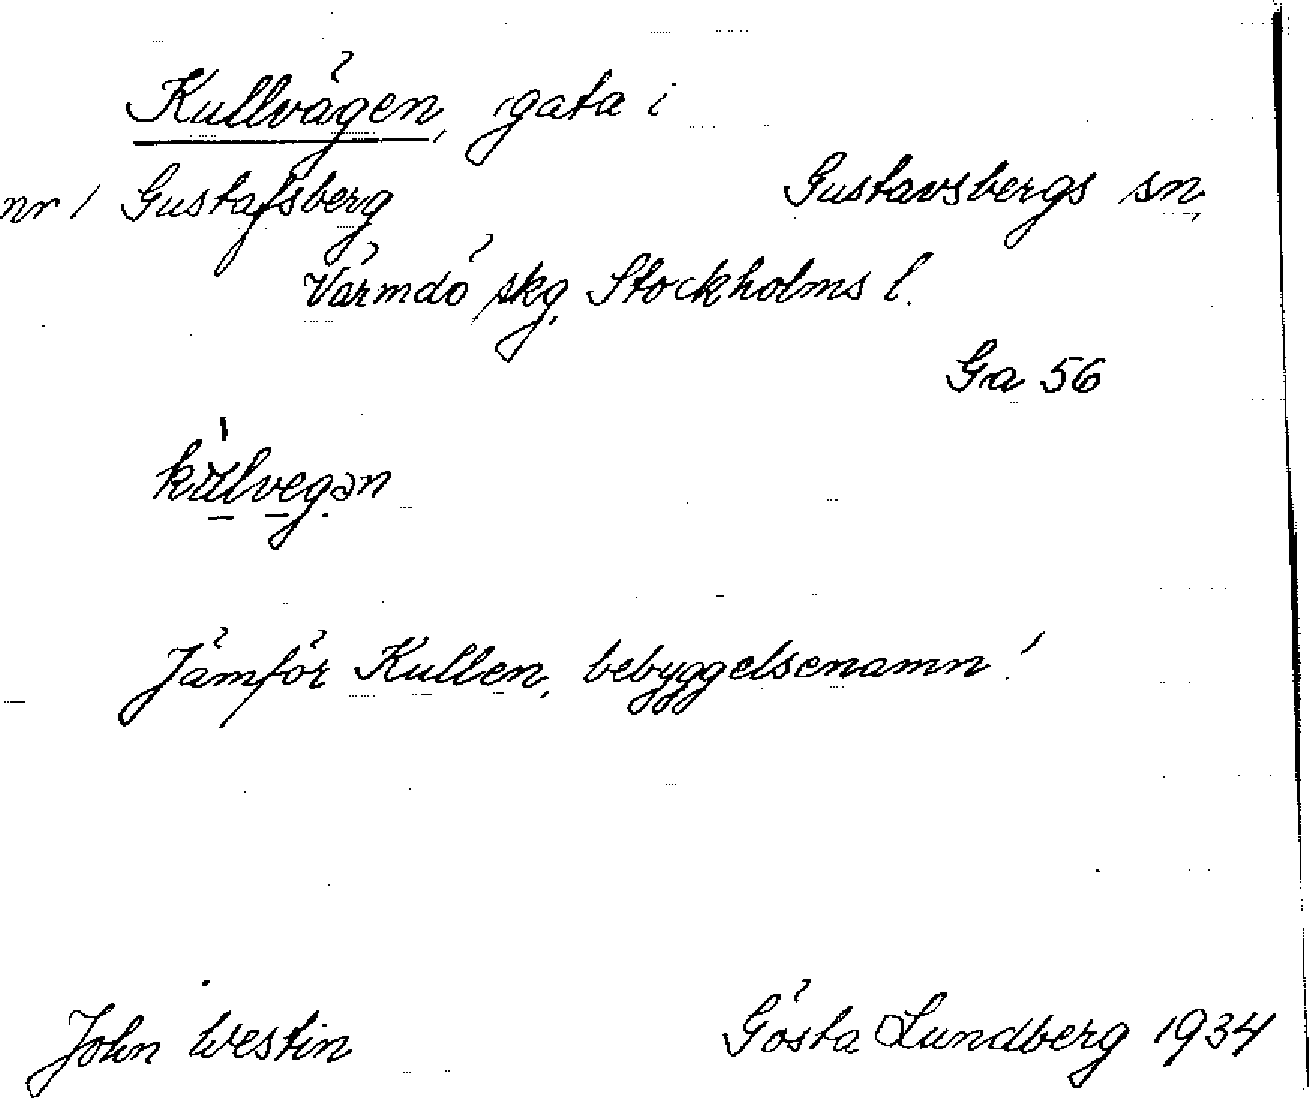 Kullvägen, gata i
nr 1 Gustafsberg Gustavsbergs sn,
Värmdö skg, Stockholms l.
Ga 56
kùlvegən
Jämför Kullen, bebyggelsenamn!
John Westin Gösta Lundberg 1934